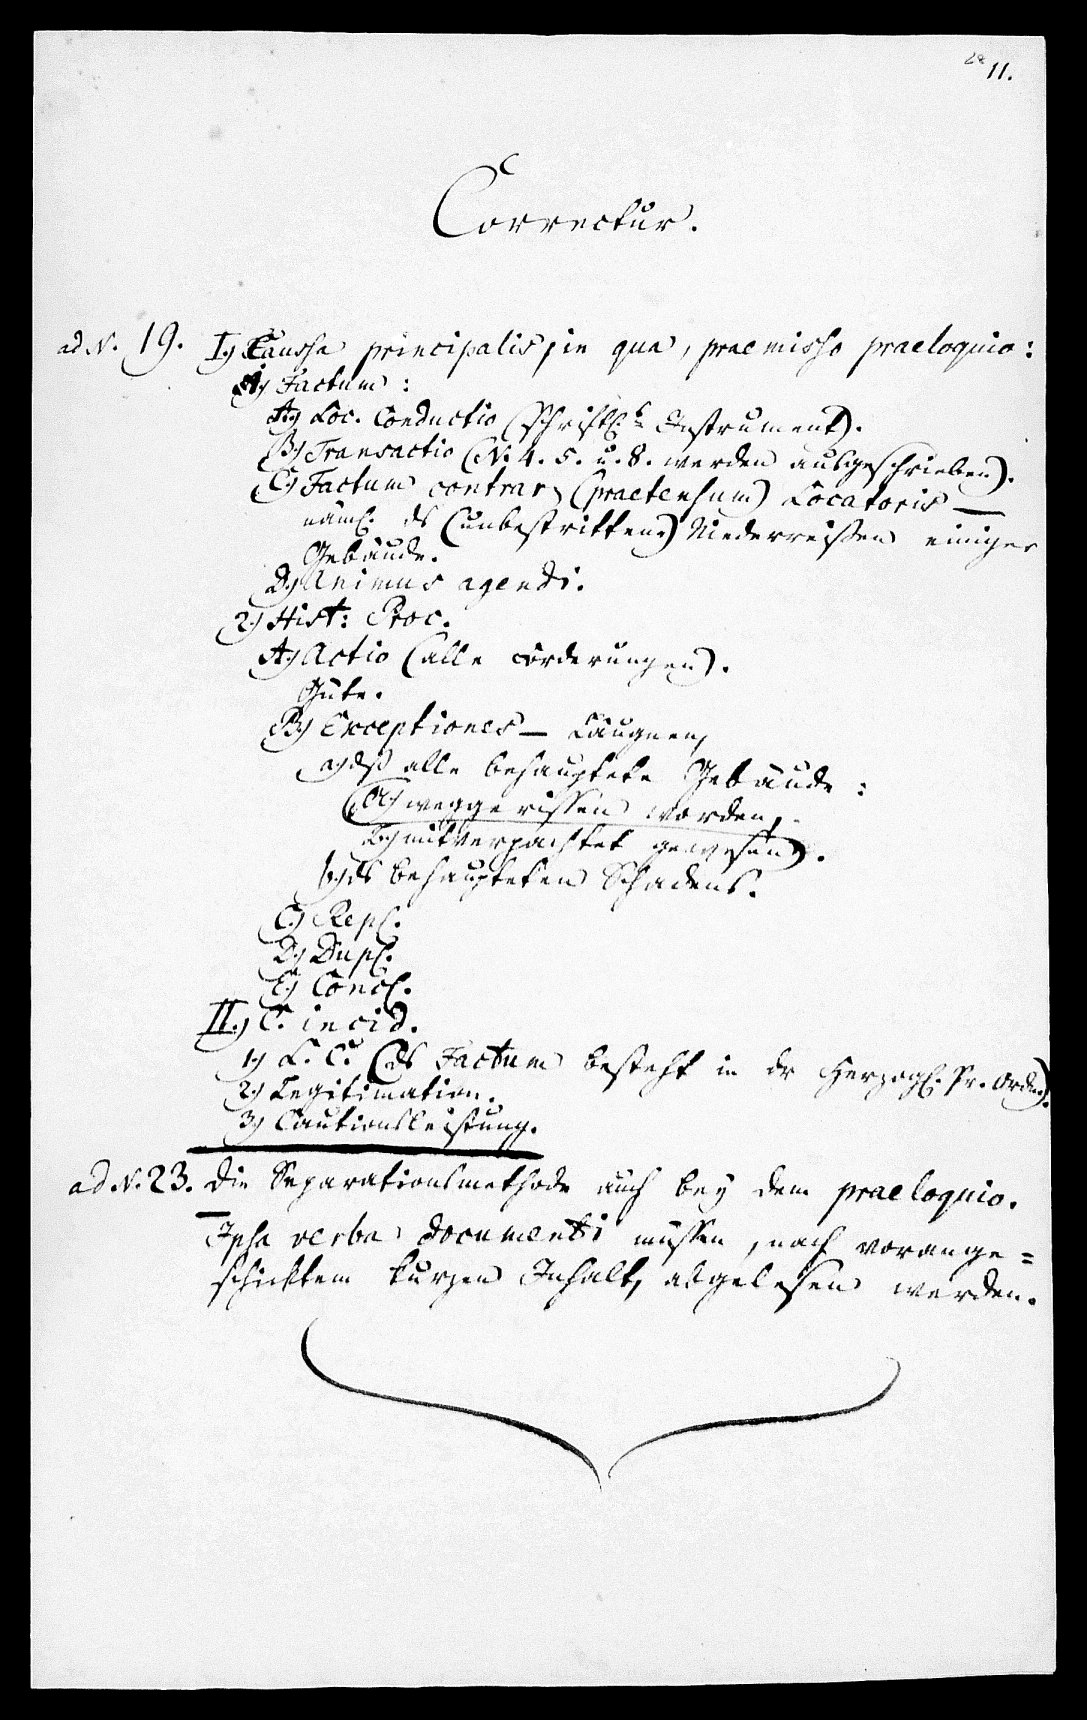 11.
Correctur.
ad N. 19. I.) Caussa principalis, in qua, praemisso praeloquio:
1.) Factum:
A.) Loc. Conductio (schriftl. Instrument).
B.) Transactio (N. 4. 5. u. 8. werden ausgeschrieben).
C.) Factum contrar. (praetensum) Locatoris —
näml. ds (unbestrittene) Niederreißen einiger
Gebäude.
D.) Animus agendi.
2.) Hist: Proc.
A.) Actio (alle Forderungen).
Güte.
B.) Exceptiones — Läugnen,
a.) dß alle behauptete Gebäude:
A.) weggerissen worden,
B.) mitverpachtet gewesen).
b.) ds behaupteten Schadens.
C.) Repl.
D.) Dupl.
E.) Concl.
II.) C. incid.
1.) L. C. (ds Factum besteht in dr Herzogl. Pr. Ordn.).
2.) Legitimation.
3.) Cautionsleistung.
ad N. 23. Die Separationsmethode auch bey dem praeloquio.
Ipsa verba documenti müssen, nach vorange=
schicktem kurzen Inhalt, abgelesen werden.